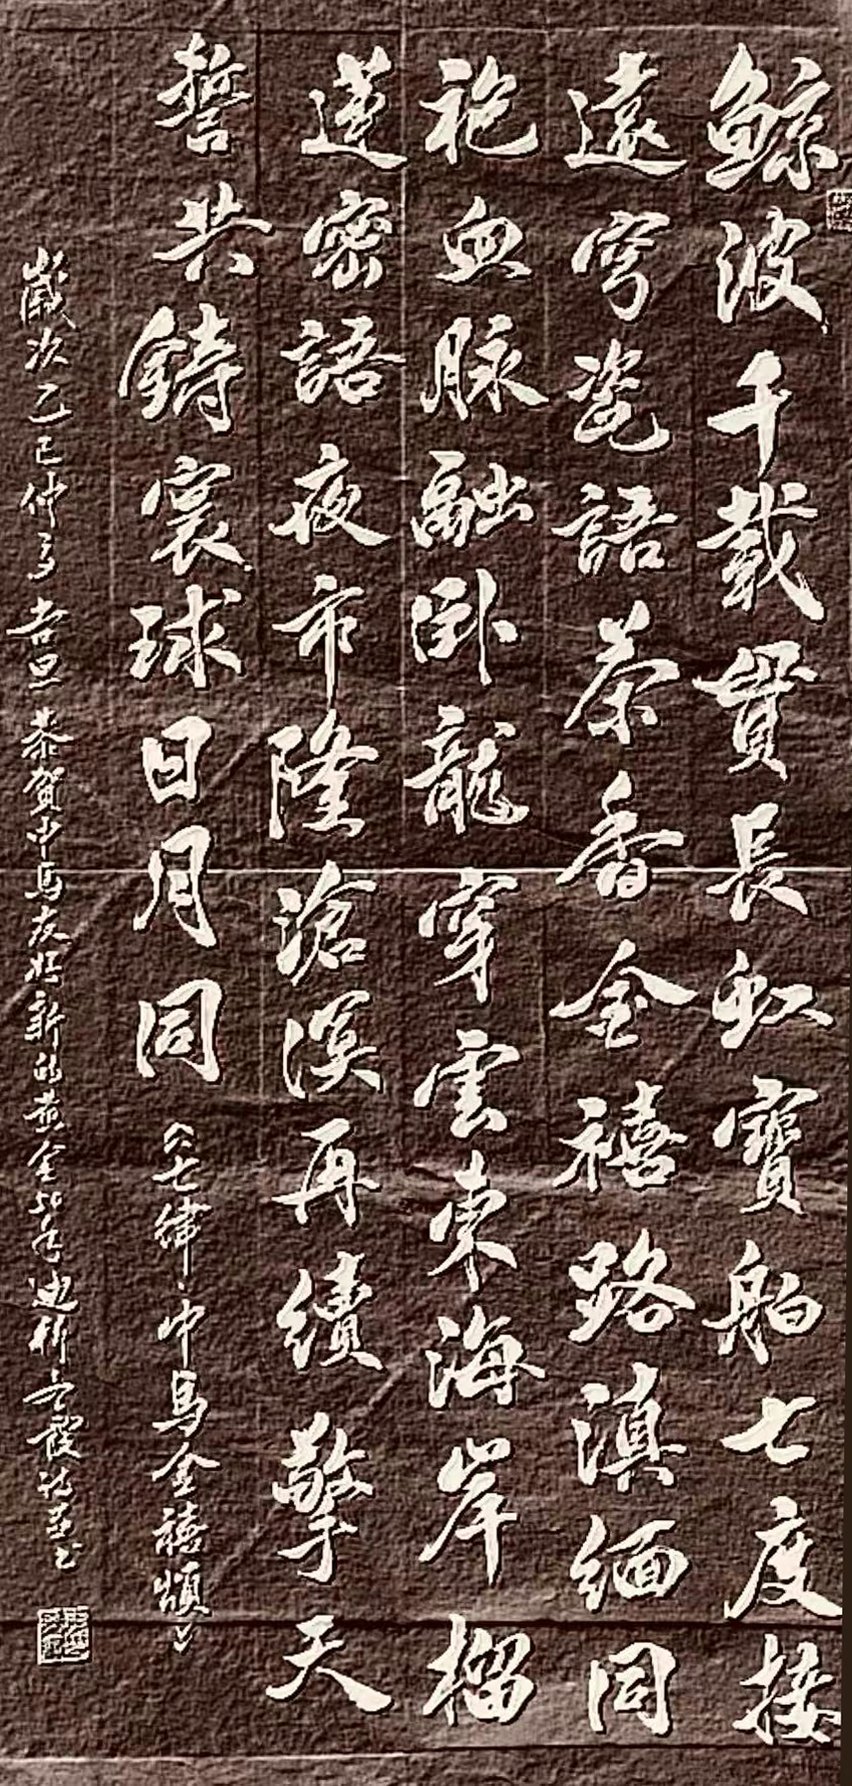 鯨波千載貫長虹寶舶七度接
遠穹瓷語茶香金禧路滇緬同
袍血脉融卧龍穿雲東海岸榴
蓮密語夜市隆滄溟再續擎天
誓共鑄寰球日月同
《七律·中馬金禧頌》
歲次乙巳仲夏吉旦恭賀中馬友好新的黄金50年迪拜